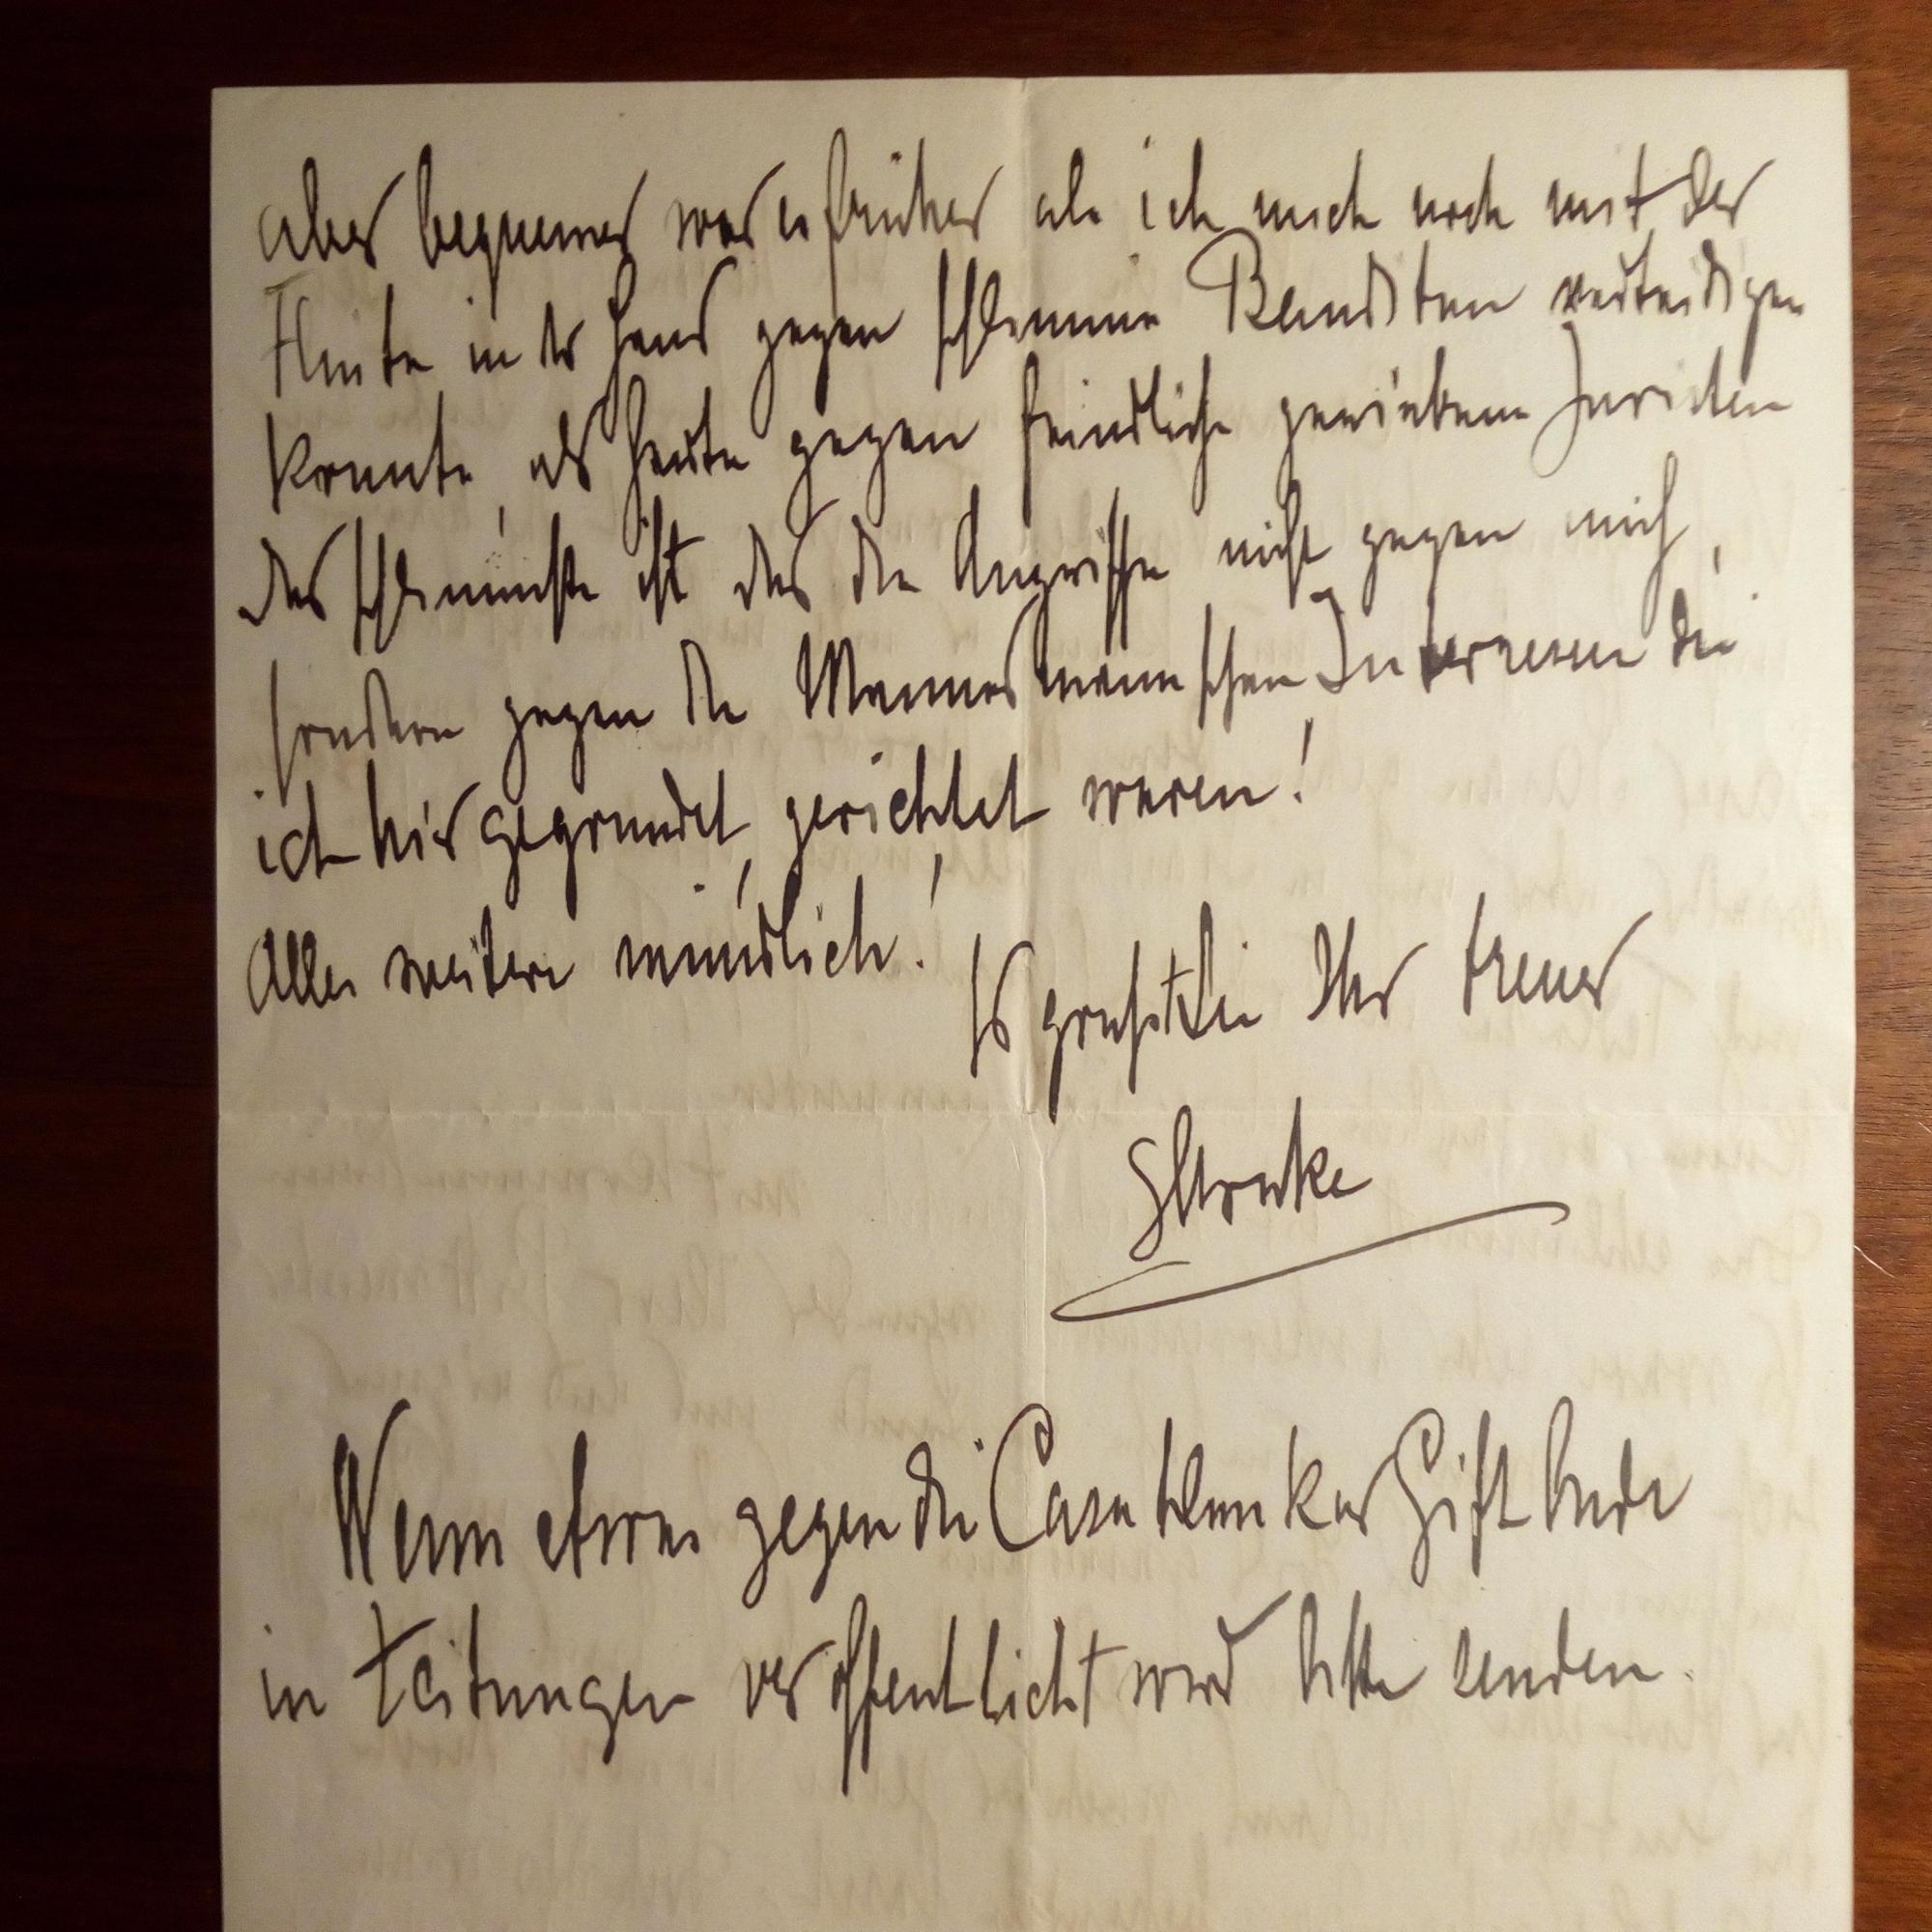 aber bequemer war es früher als ich mich noch mit der
Flinte in der Hand gegen schlimme Banditen verteidigen
konnte, als heute gegen feindliche geriebene Juristen
das schlimmste ist das die Angriffe nicht gegen mich,
sondern gegen die Mannesmannschen Interessen die
ich hier gegründet, gerichtet waren!
Alles weitere mündlich!
Es grüsst Sie Ihr treuer
Wenn etwas gegen die Casablanker Giftbude
in Zeitungen veröffentlicht wird bitte senden.